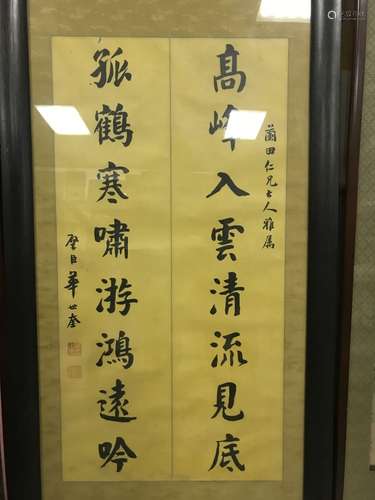 高峰入雲清流見底
蘭田仁兄大人雅属
孤鶴寒嘯游鴻遠吟
璧臣華世奎